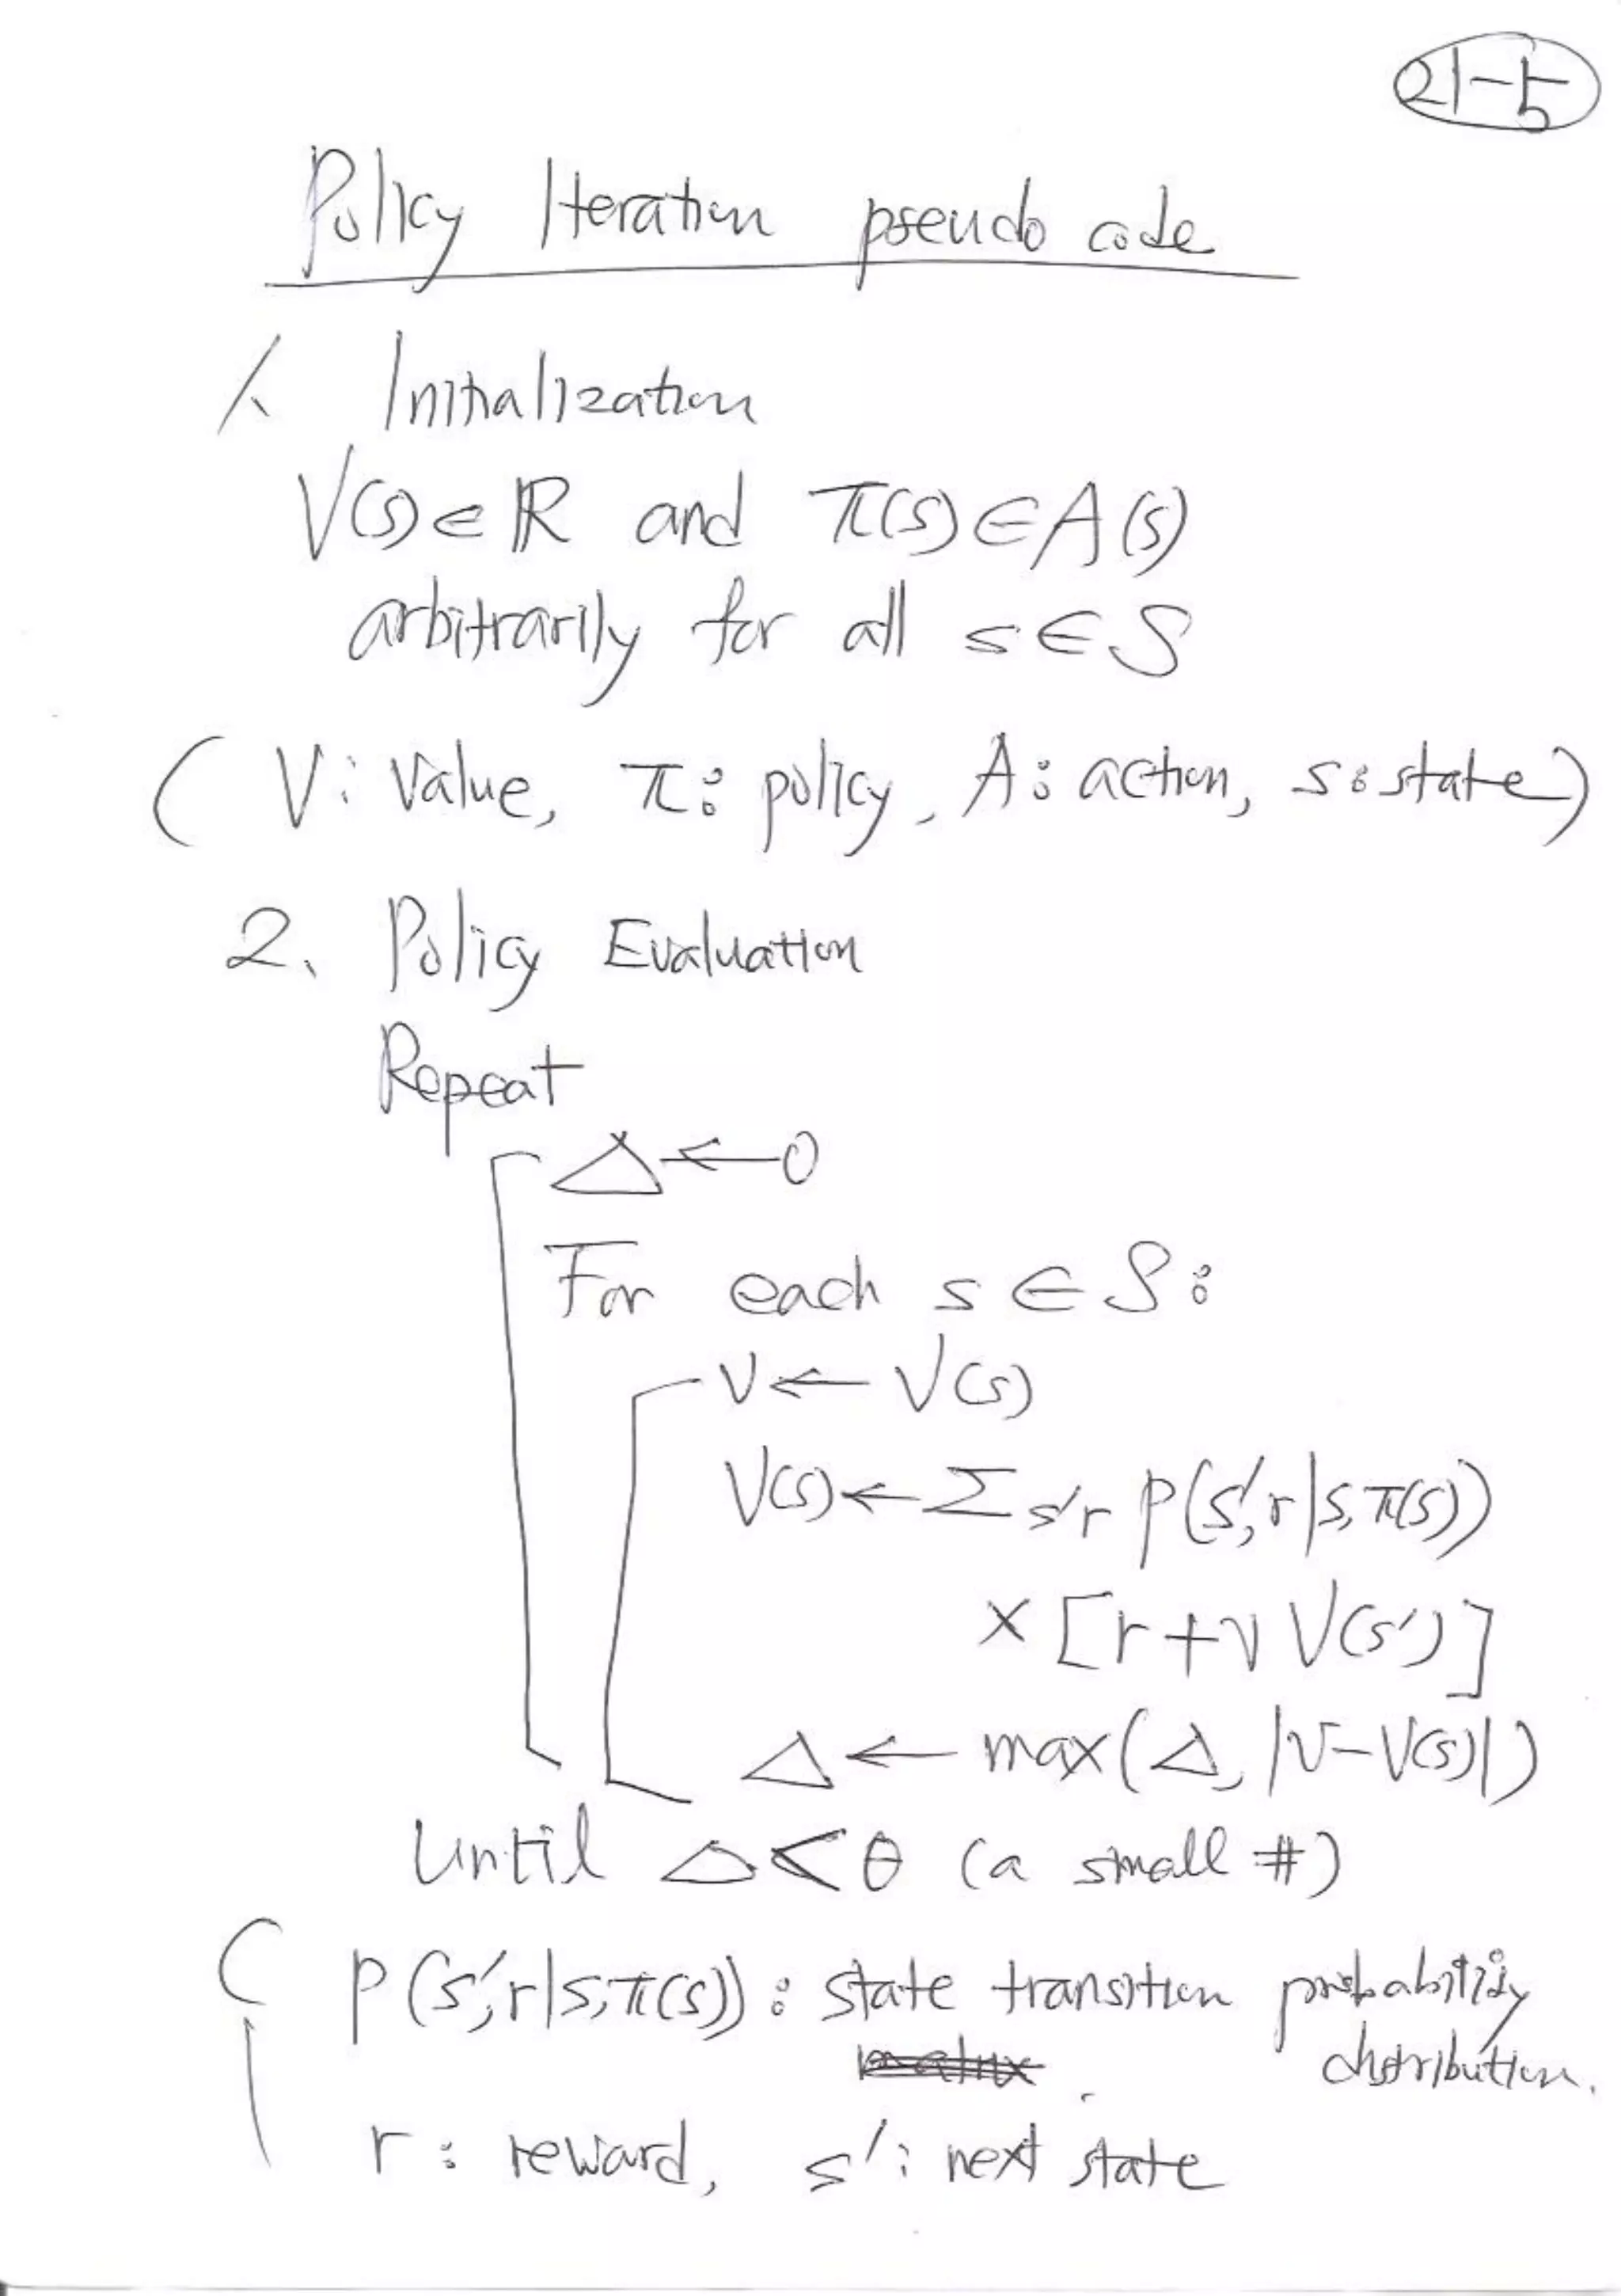 21-5
Policy Iteration pseudo code
1. Initialization
V(s) ∈ ℝ and π(s) ∈ A(s)
arbitrarily for all s ∈ S
( V: Value, π: policy, A: action, s: state)
2. Policy Evaluation
Repeat
Δ ← 0
For each s ∈ S:
v ← V(s)
V(s) ← Σ s'r p(s',r|s,π(s))
× [r + γ V(s')]
Δ ← max(Δ, |v - V(s)|)
Until Δ < θ (a small #)
( p(s',r|s,π(s)): state transition probability
matrix. distribution.
r: reward, s': next state